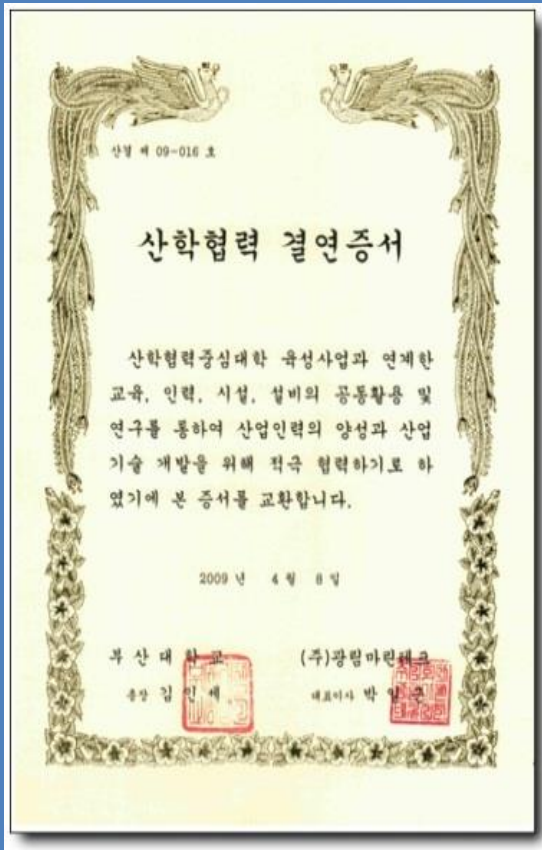 산결 제 09-016 호
산학협력 결연증서
산학협력중심대학 육성사업과 연계한
교육, 인력, 시설, 설비의 공동활용 및
연구를 통하여 산업인력의 양성과 산업
기술 개발을 위해 적극 협력하기로 하
였기에 본 증서를 교환합니다.
2009 년 4 월 8 일
부 산 대 학 교 (주)광림마린테크
총장 김 인 세 대표이사 박